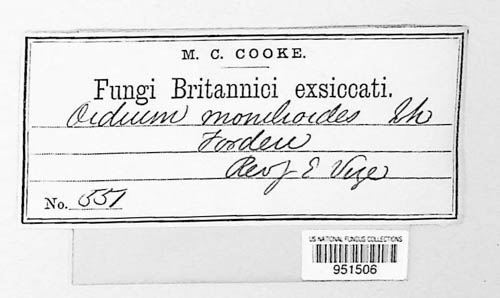 M. C. COOKE.
Fungi Britannici exsiccati.
Oidium monilioides Lk
Forden
Rev J E Vize
No. 551
US NATIONAL FUNGUS COLLECTIONS
951506